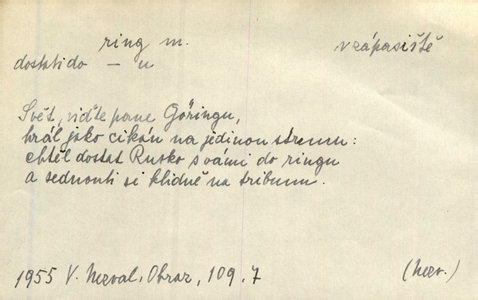 ring m. v zápasiště
dostati do – u
Svět, viďte pane Göringu,
hrál jako cikán na jedinou strunu:
chtěl dostat Rusko s vámi do ringu
a sednouti si klidně na tribunu.
1955 V. Nezval, Obraz, 109, 7 (Nezv.)